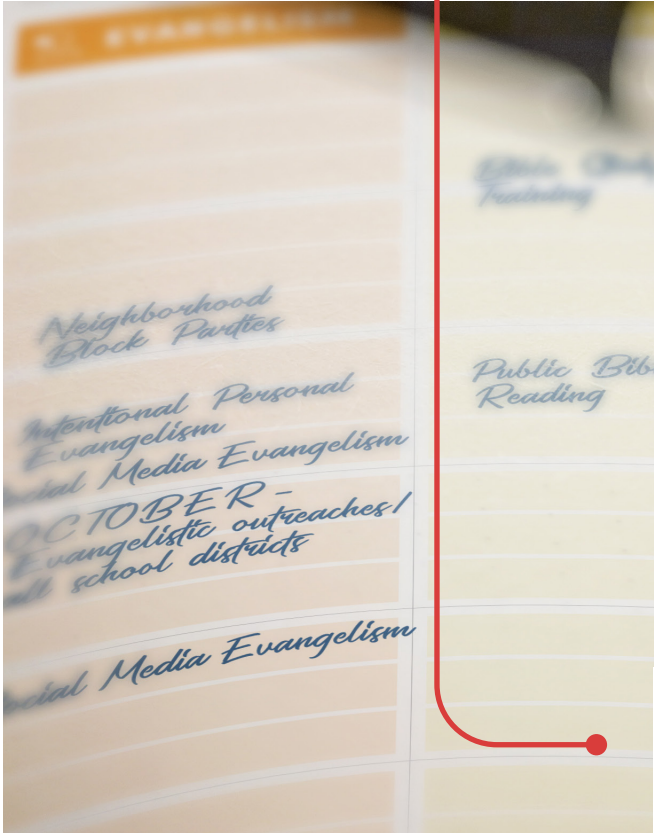 EVANGELISM
Neighborhood
Block Parties
Intentional Personal
Evangelism
Social Media Evangelism
OCTOBER -
Evangelistic outreaches/
all school districts
Social Media Evangelism
Bible Study
Training
Public Bib
Reading